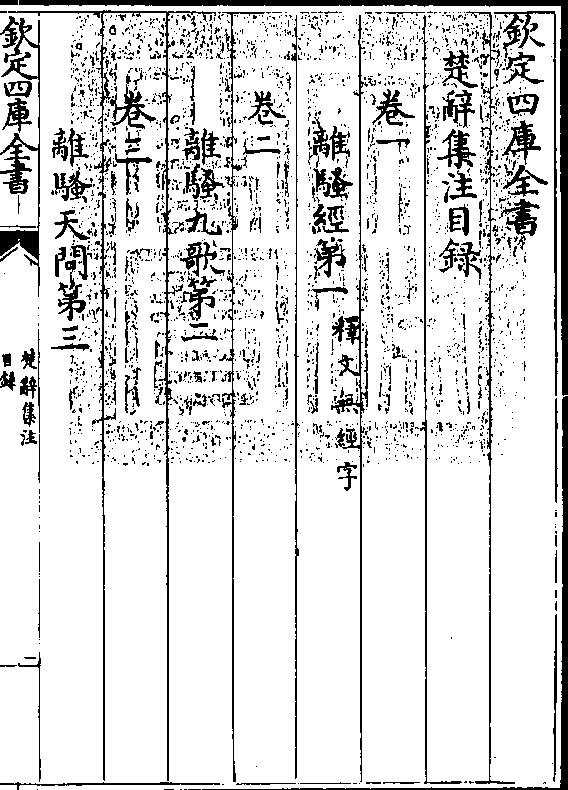 欽定四庫全書
楚辭集注目録
卷一
離騷經第一 釋文無經字
卷二
離騷九歌第二
卷三
離騷天問第三
欽定四庫全書
楚辭集注
目録
二